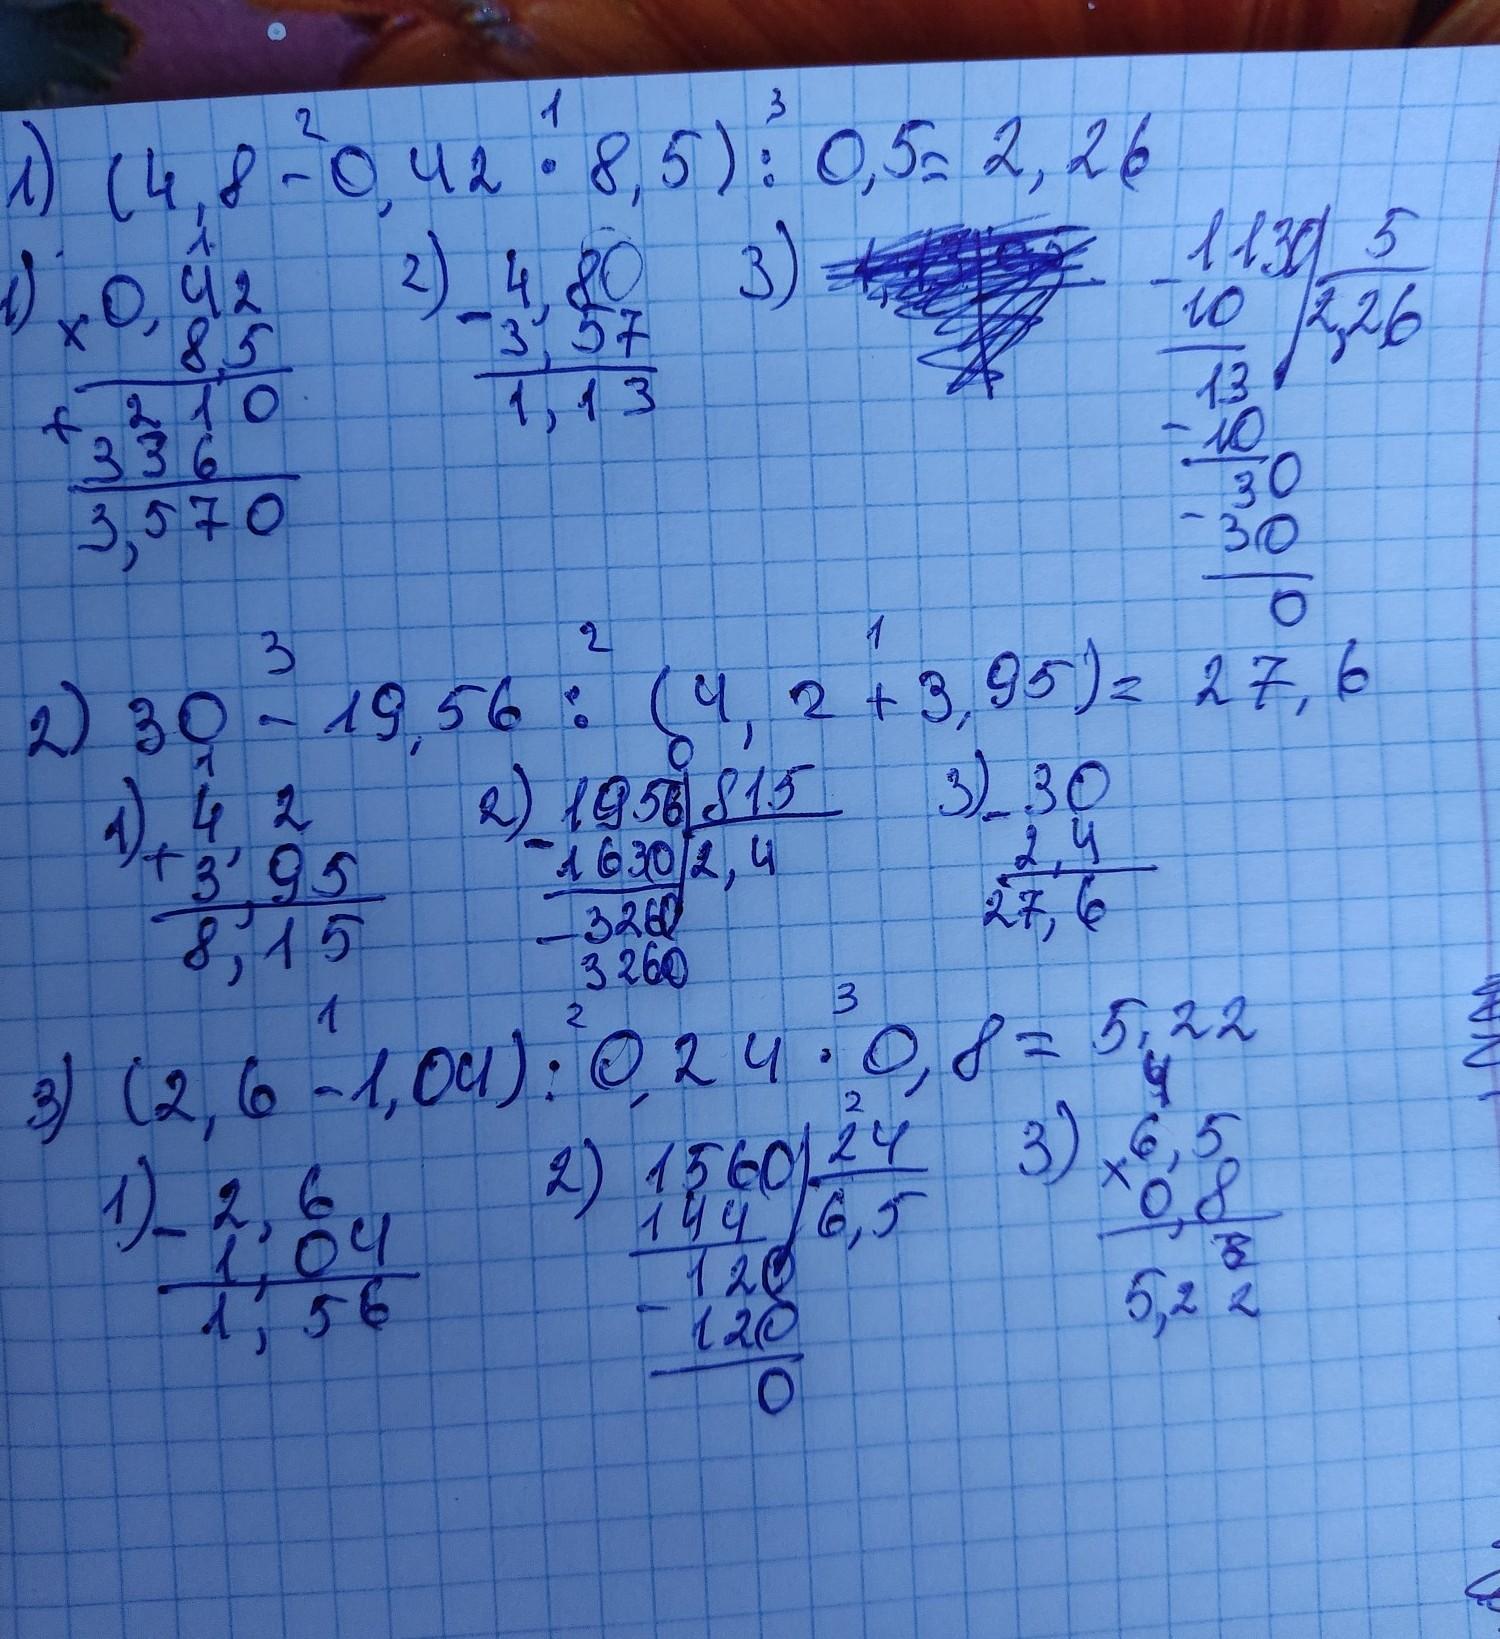 2 1 3
1) (4,8 - 0,42 · 8,5) : 0,5 = 2,26
1
1) × 0,42 2) - 4,80 3) - 1130 | 5
8,5 3,57 10 2,26
+ 210 1,13 13
336 - 10
3,570 30
- 30
0
3 2 1
2) 30 - 19,56 : (4,2 + 3,95) = 27,6
1 0
1) + 4,2 2) - 1956 | 815 3) - 30
3,95 1630 2,4 2,4
8,15 - 3260 27,6
3260
1 2 3
3) (2,6 - 1,04) : 0,24 · 0,8 = 5,22
2 4
1) - 2,6 2) 1560 | 24 3) × 6,5
1,04 144 6,5 0,8
1,56 - 120 5,22
120
0